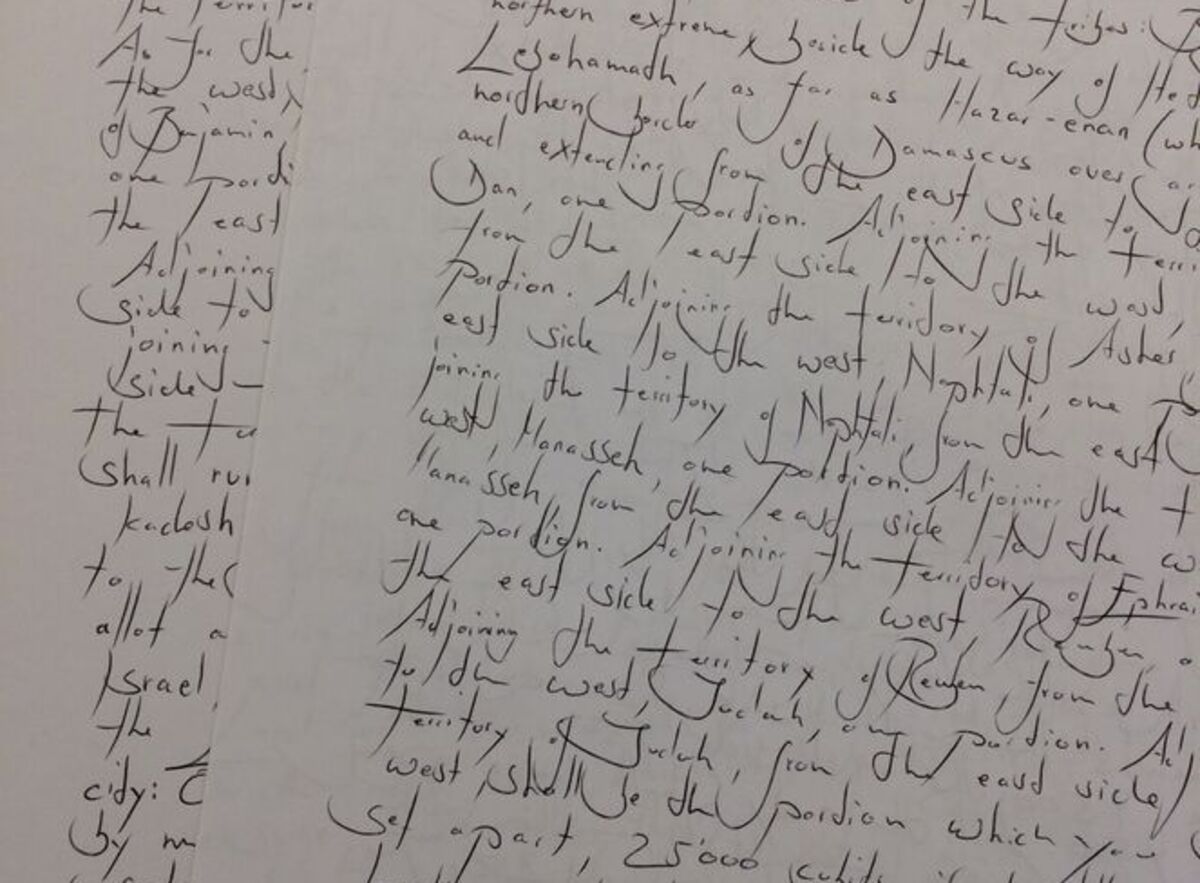 the territor
As for the
the west,
of Benjamin
one portion
the east
Adjoining
side to
joining
side —
the
shall run
kadesh
to the
allot a
Israel
the
city:
by m
northern extreme, beside the way of
Lebohamath, as far as Hazar-enan (wh
northern border of Damascus over
and extending from the east side to
Dan, one portion. Adjoining the terri
from the east side to the west,
portion. Adjoining the territory of Asher
east side to the west, Naphtali, one
joining the territory of Naphtali, from the east
west, Manasseh, one portion. Adjoining the t
Manasseh, from the east side to the w
one portion. Adjoining the territory of Ephrai
the east side to the west, Reuben, o
Adjoining the territory of Reuben, from the
to the west, Judah, one portion. Ad
territory of Judah, from the east side
west, shall be the portion which you
set apart, 25'000 cubits